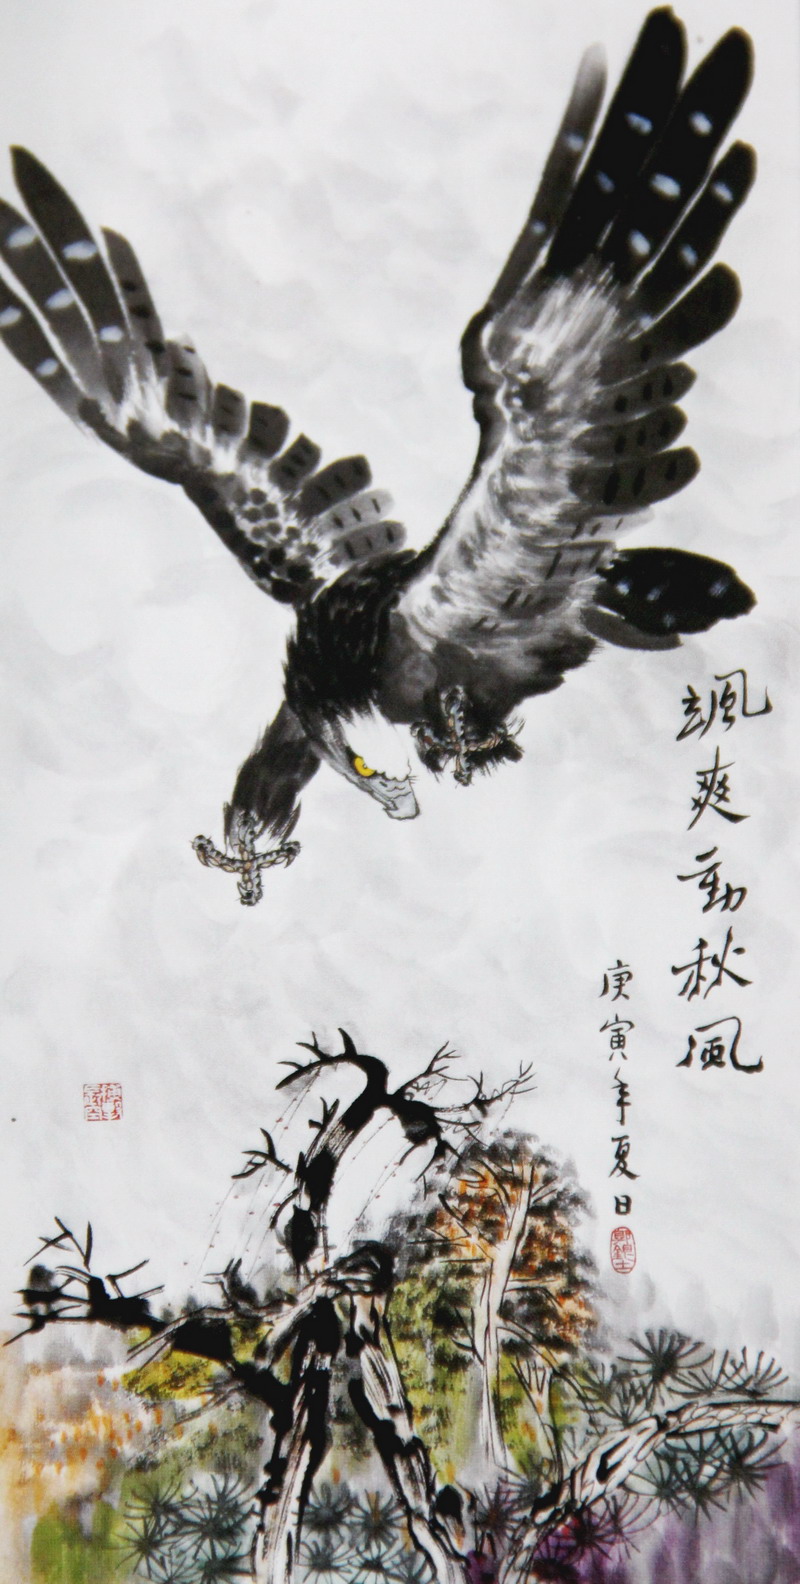 颯爽動秋風
庚寅年夏日